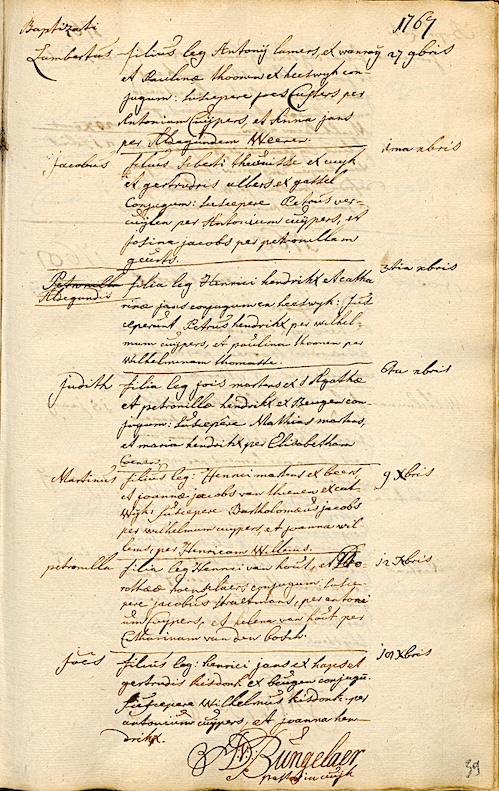 Baptizati 1767
Lambertus filius leg Antonij lamers, ex wanroij 27 9bris
et Paulinæ thoonen ex heeswijk con-
jugum: suscepere joes Cuijpers per
Antonium Cuijpers, et Anna jans
per Aldegundem Weerer.
jacobus filius Seberti theunisse ex cuijk 1ma xbris
et gertrudis albers ex gassel
Conjugum: suscepere Petrus ver-
cuijlen per Antonium cuijpers, et
josina jacobs per petronillam
geurts.
Petronilla filia leg Henrici hendrikx et catha 3tia xbris
Aldegundis rinæ jans conjugum ex heeswijk: sus
ceperunt Petrus hendrikx per wilhel-
mum cuijpers, et paulina thoonen per
Wilhelminam thomasse.
judith filia leg jois martens ex s Agathæ 6ta xbris
et petronillæ hendrikx ex Beugen con-
jugum: suscepere Mathias martens,
et maria hendrikx per Elisabetham
Coenen.
Martinus filius leg: Henrici martens ex beers 9 Xbris
et joannæ jacobs van thienen ex cat
Wijk: suscepere Bartholomæus jacobs
per wilhelmum cuijpers, et joanna wil
lems, per Henricam Willems.
petronilla filia leg Henrici van hout, et Do- 12 Xbris
rothææ conjugum. susce-
pere jacobus straetmans, per antoni
um Cuijpers, et helena van hout per
Catharinam van den bosch.
joës filius leg: henrici jans ex haps et Xbris
gertrudis kisdonk ex beugen conjugu.
suscepere Wilhelmus kisdonk per
antonium cuijpers, et joanna hen-
drikx.
Bungelaer
pastor in cuijk
39